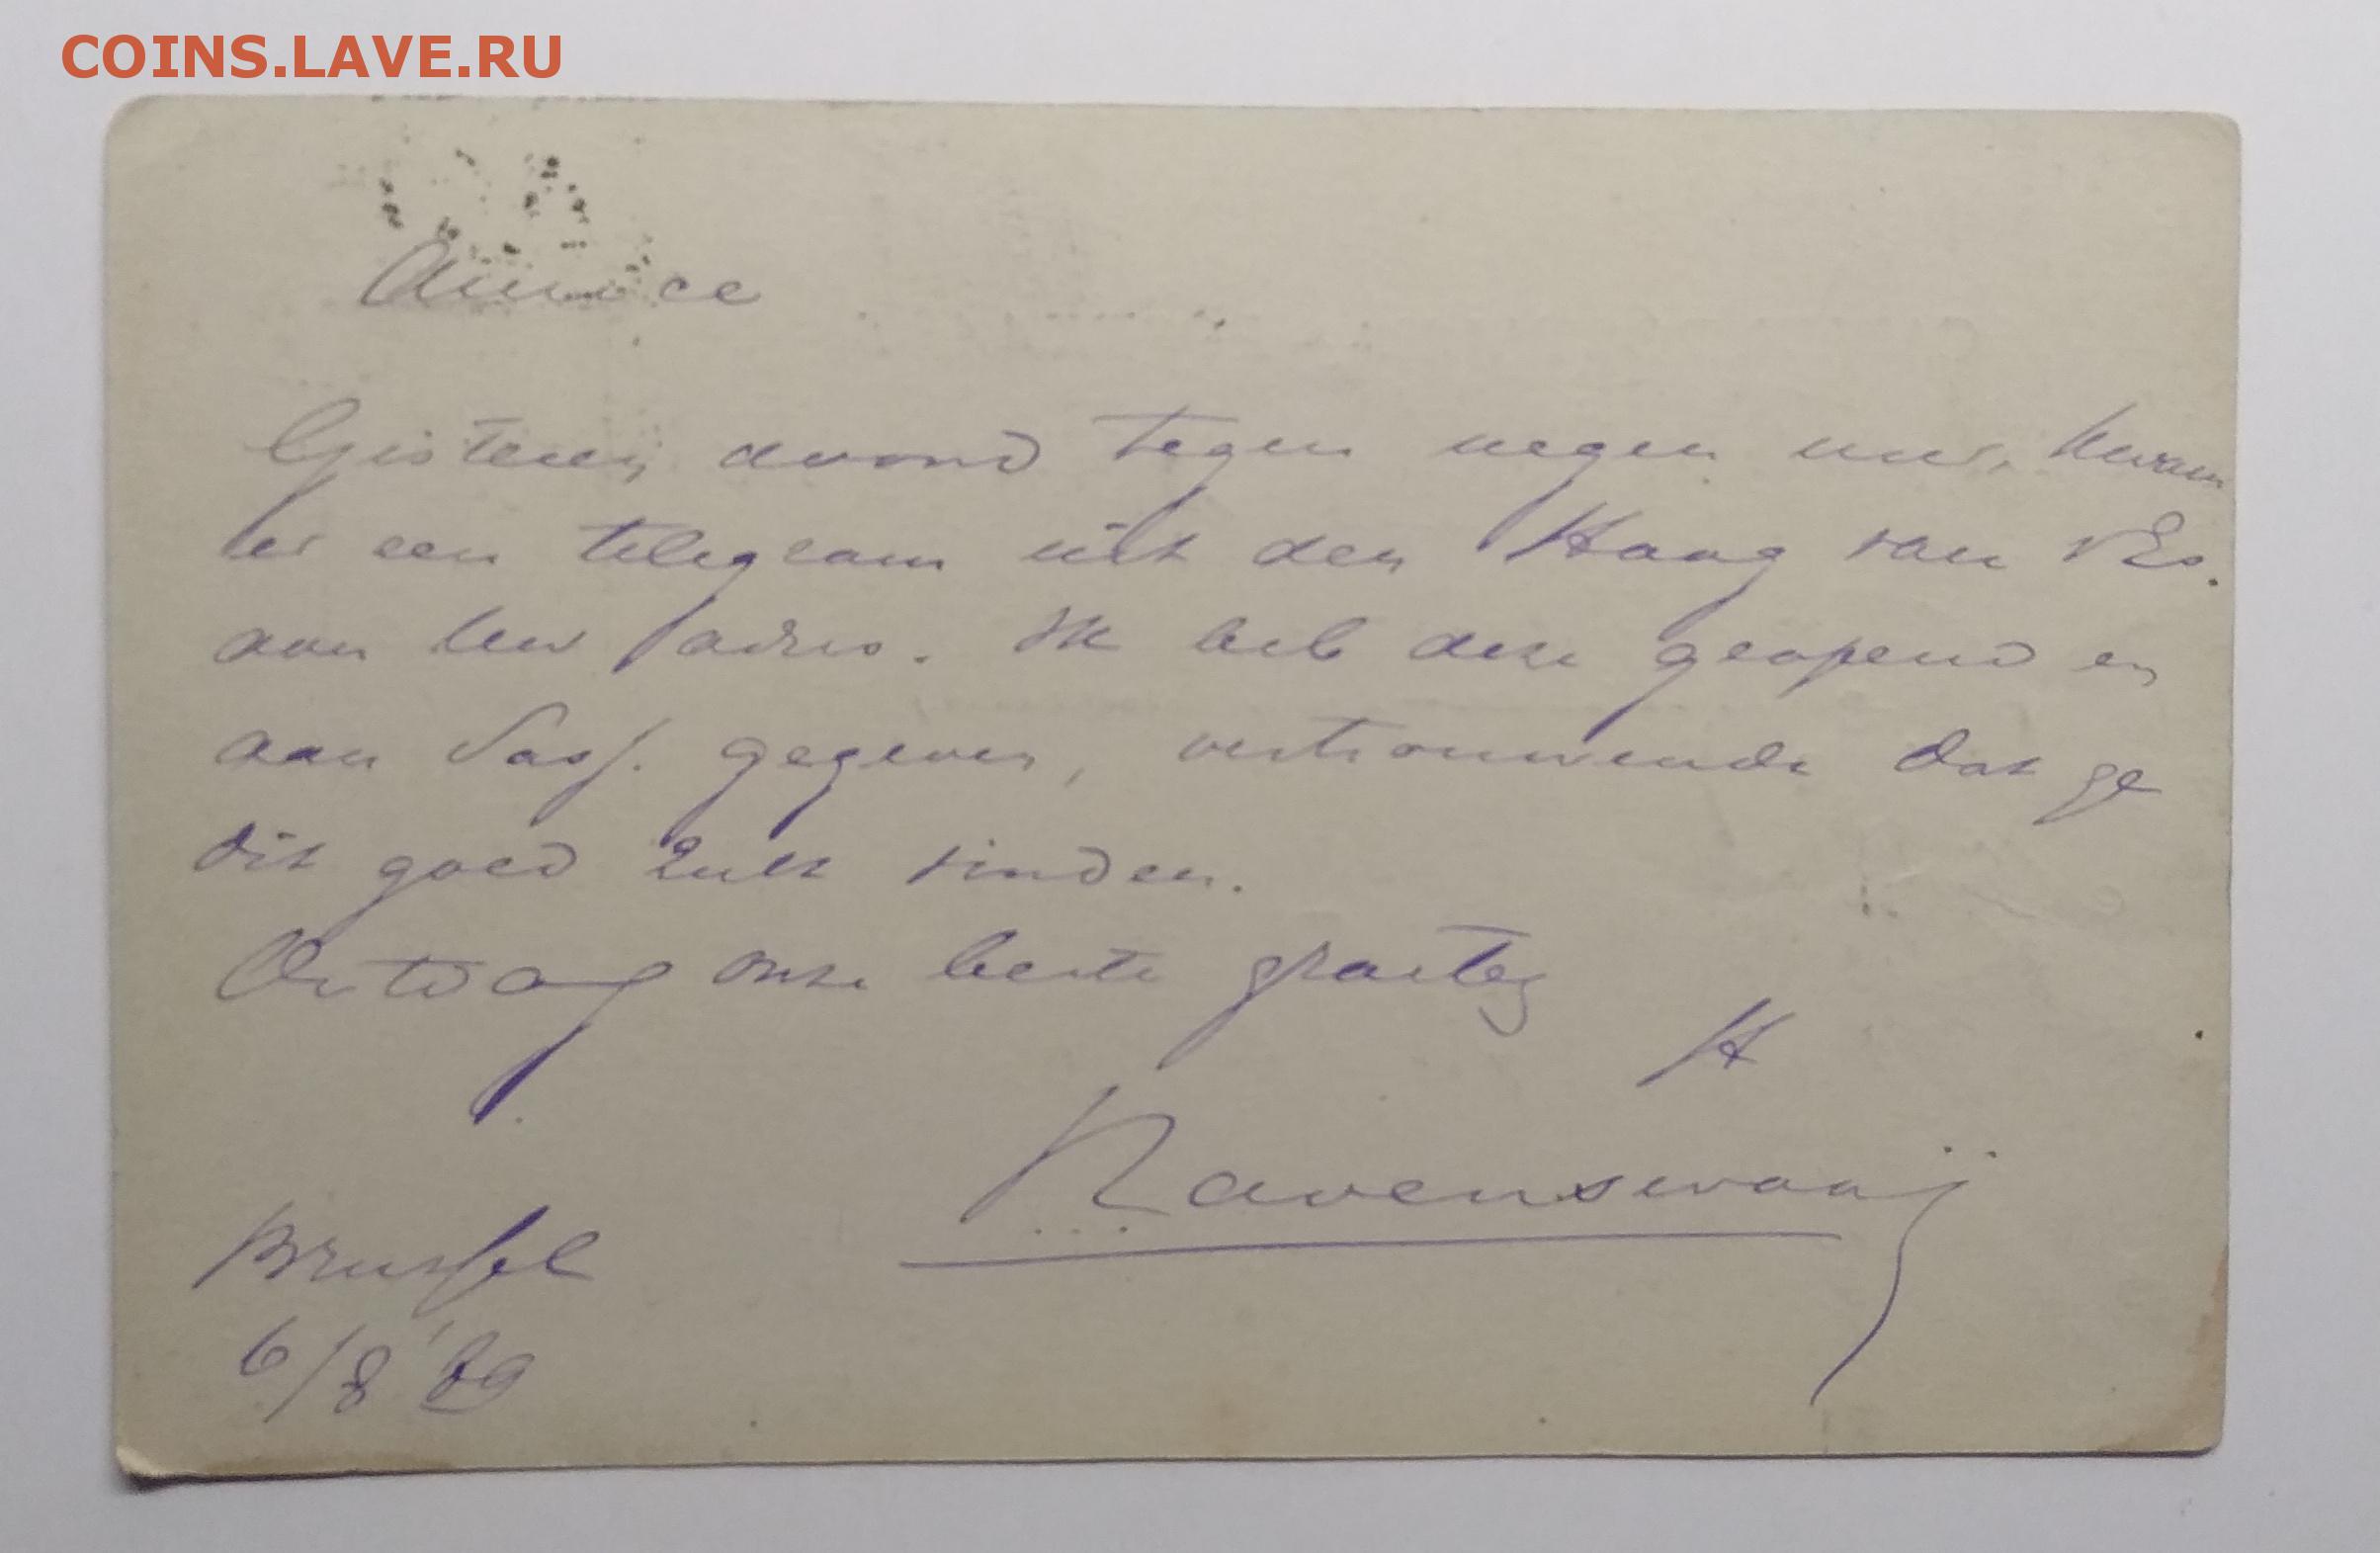 COINS.LAVE.RU
Amice
Gisteren avond tegen negen uur, kwam
er een telegram uit den Haag van
aan Uw adres. Ik heb deze geopend en
aan Sass. gegeven, vertrouwende dat ge
dit goed zult vinden.
Ontvang onze beste groeten
H
Ravenswaaij
Brussel
6/8 '89